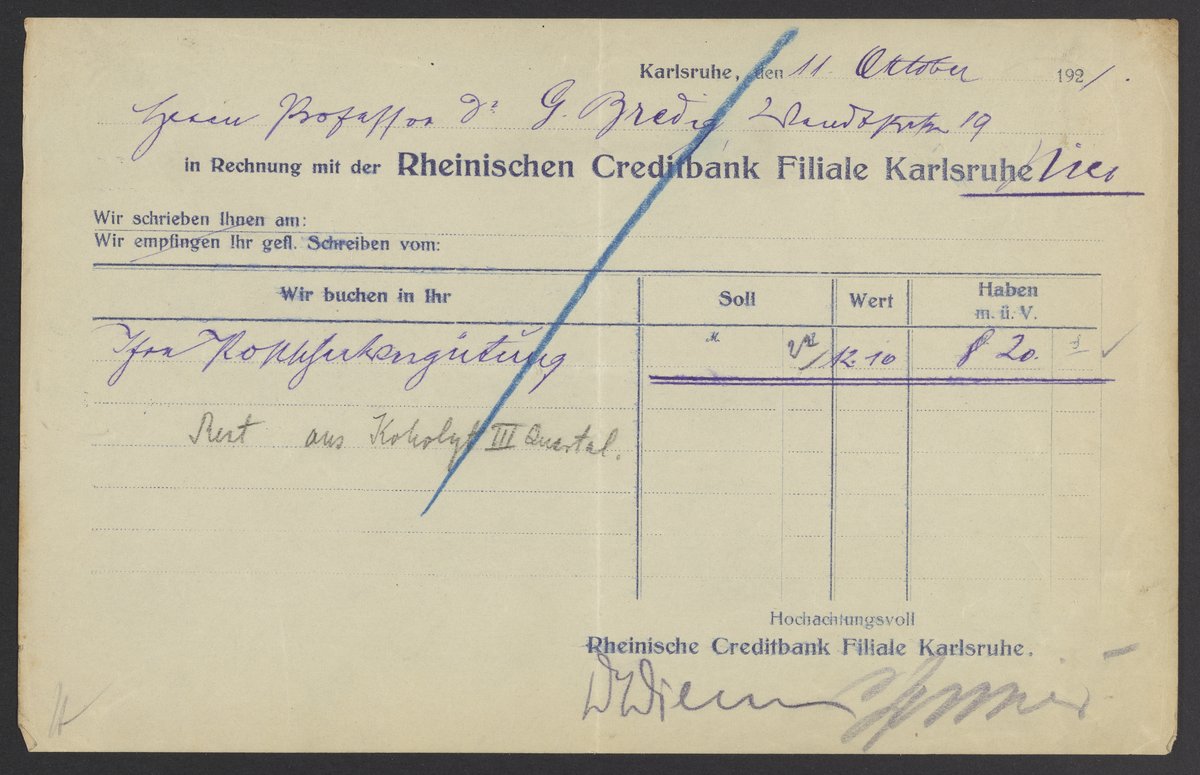 Karlsruhe, den 11. Oktober 1921.
Herrn Professor Dr G. Bredig Wendtstr 19
in Rechnung mit der Rheinischen Creditbank Filiale Karlsruhe hier
Wir schrieben Ihnen am:
Wir empfingen Ihr gefl. Schreiben vom:
Wir buchen in Ihr Soll Wert Haben
m. ü. V.
Ihre 12 10 20.
Rest aus Koholyt III Quartal.
Hochachtungsvoll
Rheinische Creditbank Filiale Karlsruhe.